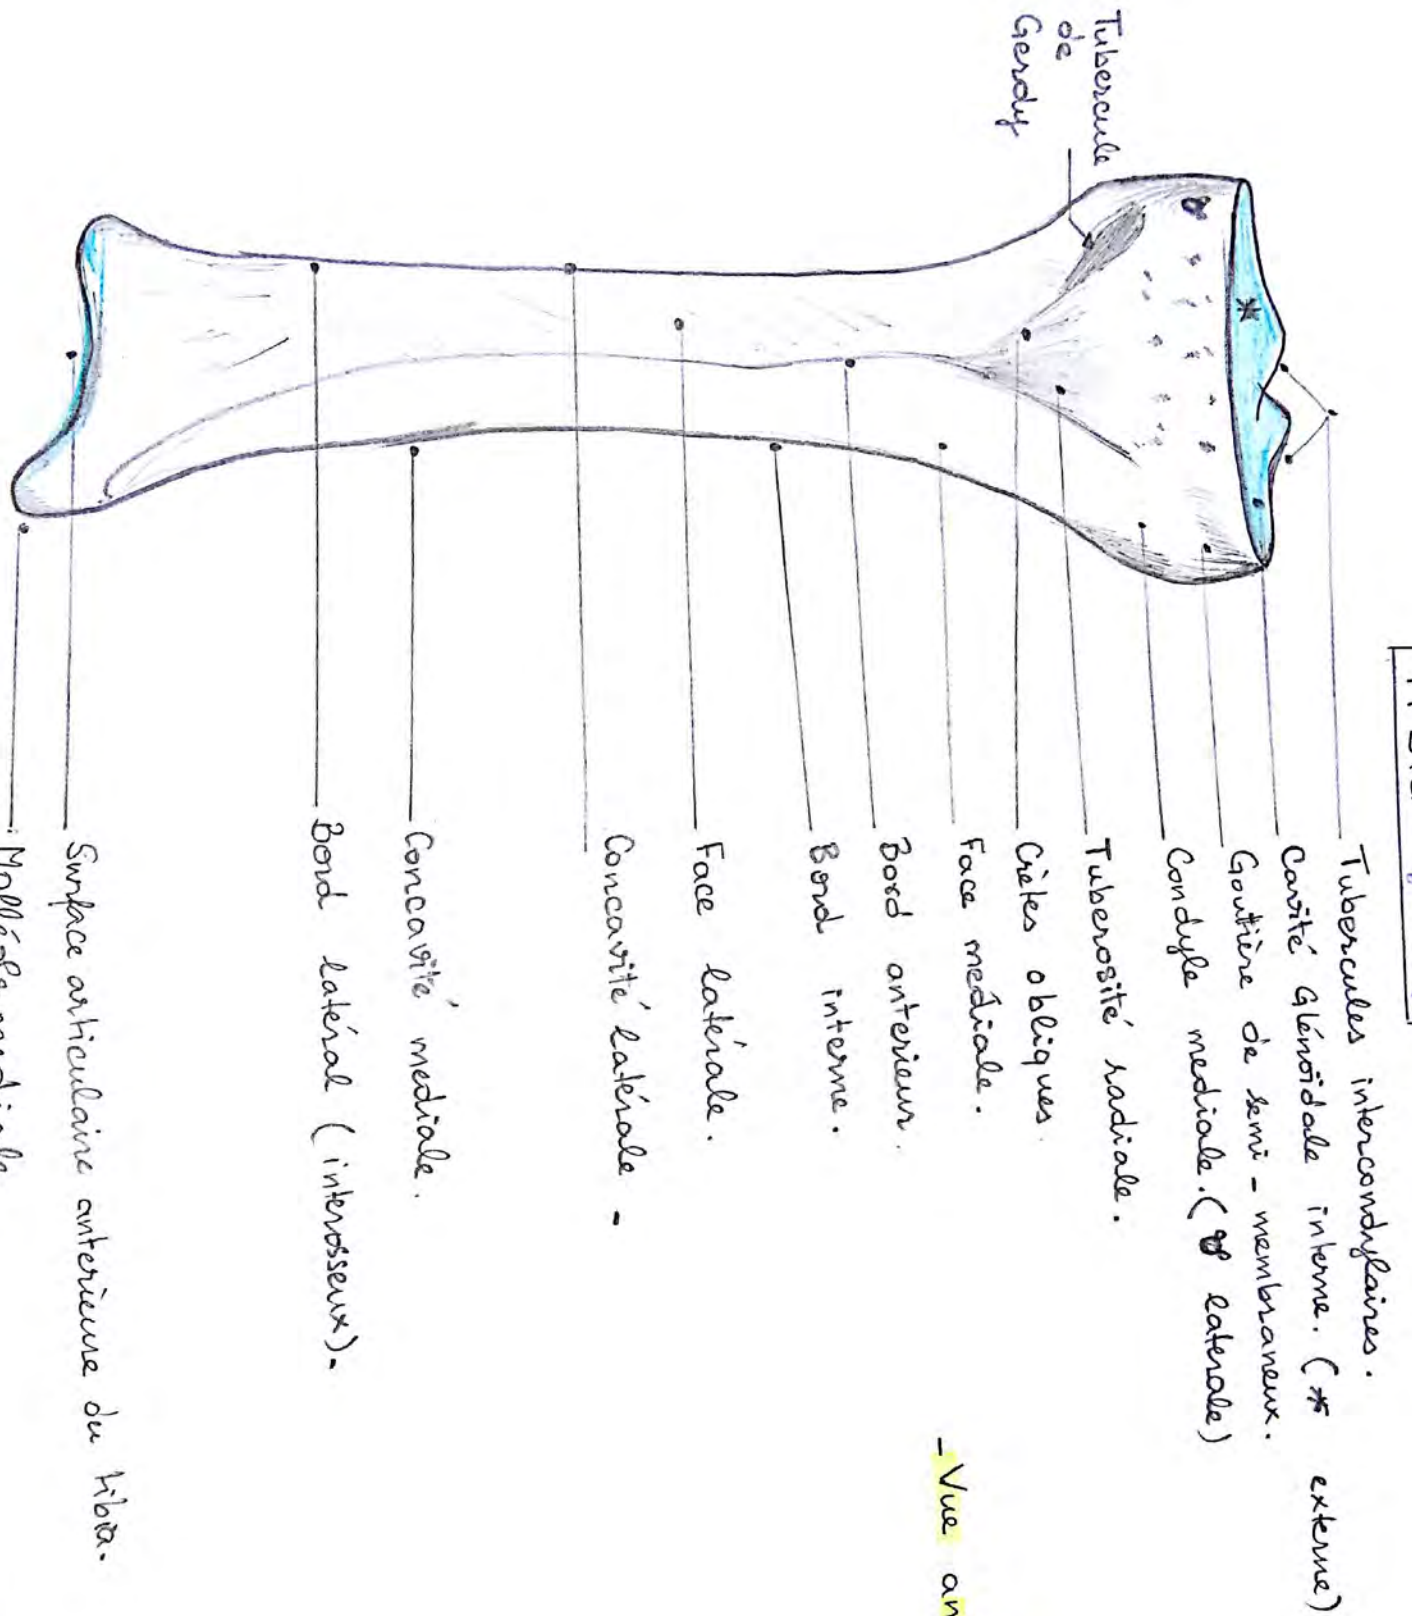 Tubercule
de
Gerdy
Tubercules intercondylaires.
Cavité Glénoïdale interne. (* externe)
Goutière de semi-membraneux.
Condyle mediale. (latérale)
Tuberosité radiale.
Crètes obliques.
Face mediale.
Bord anterieur.
Bord interne.
Face latérale.
Concavité latérale -
Concavité mediale.
Bord latéral (interosseux).
Surface articulaire anterieure du tibia.
Malléole mediale
- Vue an